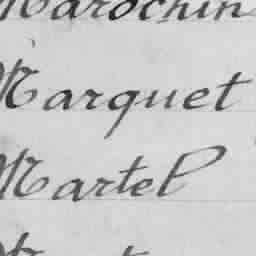 Marochin
Marquet
Martel